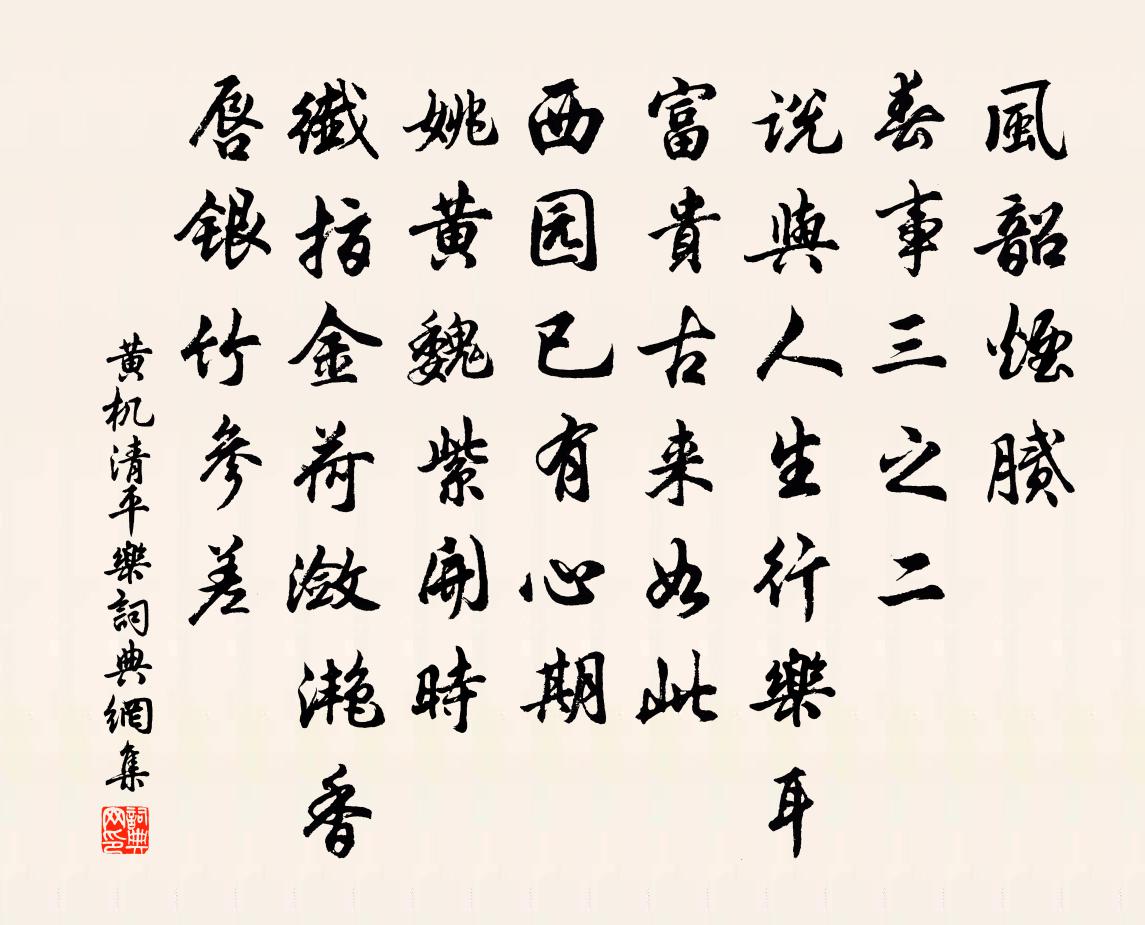 風韶煙膩
春事三之二
说與人生行樂耳
富貴古来如此
西园已有心期
姚黄魏紫開時
纖指金荷潋滟香
唇銀竹參差
黄机清平樂詞典網集
詞典网印